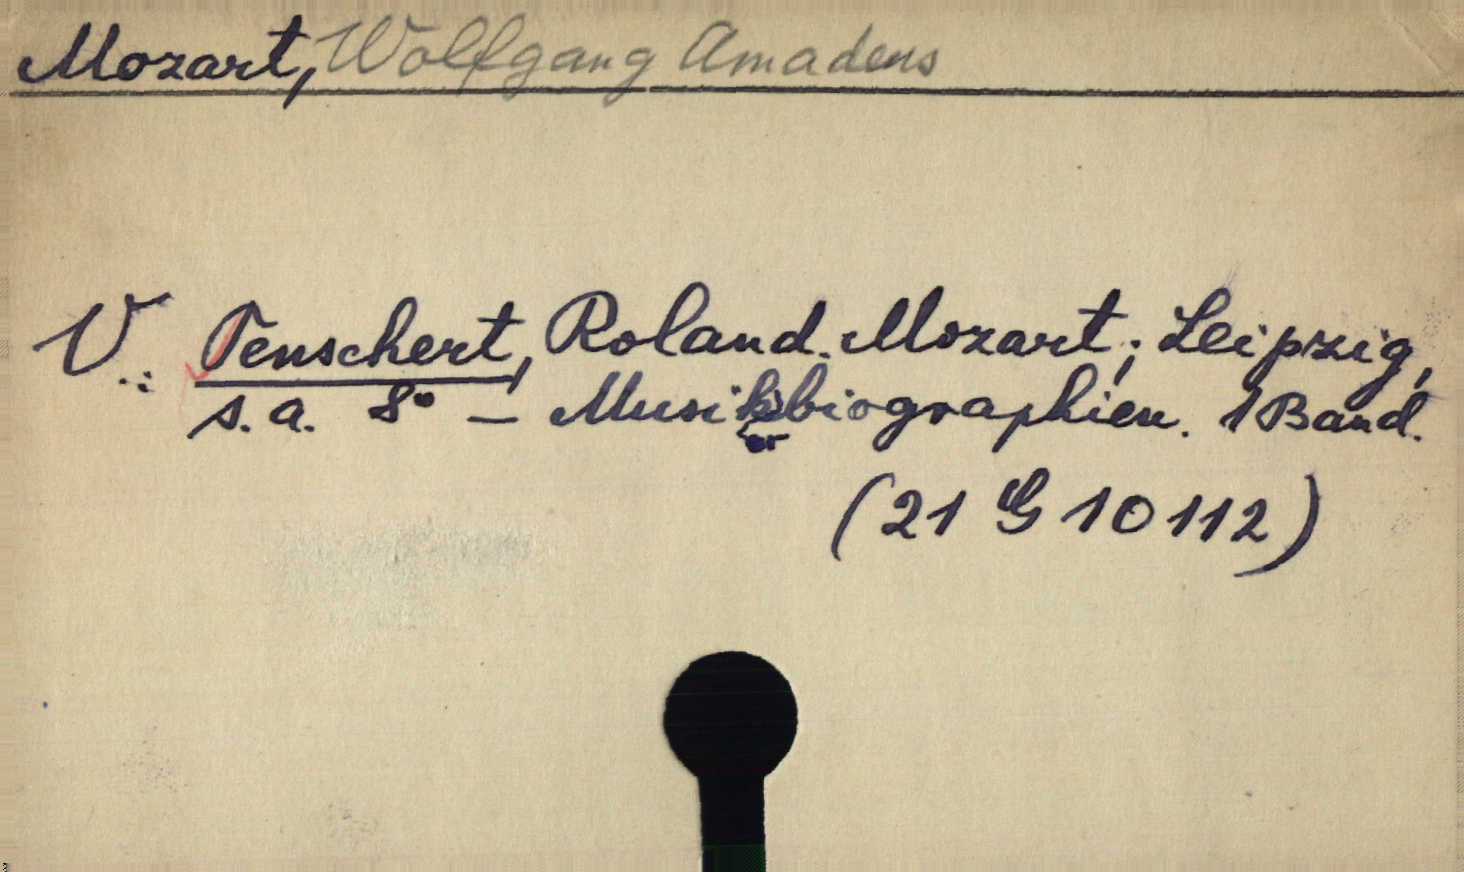 Mozart, Wolfgang Amadeus
V.: Tenschert, Roland. Mozart; Leipzig,
s. a. 8° — Musikbiographien. 1 Band.
er
(21 G 10112)